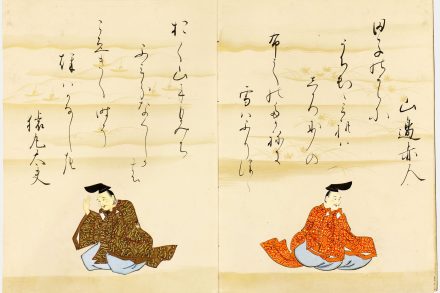 山邊赤人
田子のうらに
うち出てみれは
しろ妙の
布しの高ねに
雪はふりつゝ
おく山にもみち
ふみわけなくしかの
こゑきく時そ
秋はかなしき
猿丸太夫